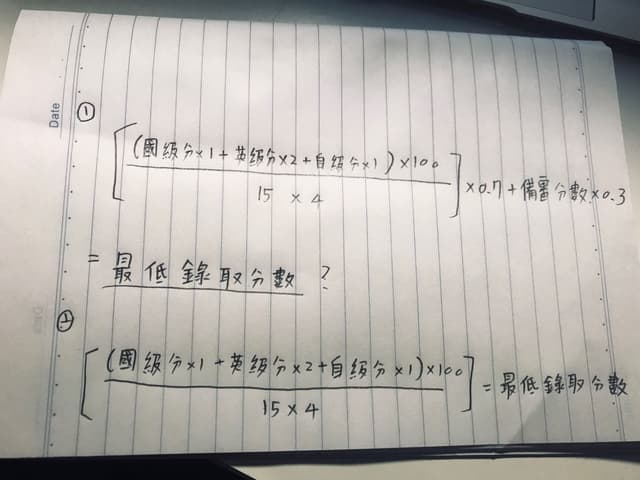 Date
①
[(國級分×1+英級分×2+自級分×1)×100
15 × 4
]×0.7+備審分數×0.3
= 最低錄取分數?
②
[(國級分×1+英級分×2+自級分×1)×100
15×4
]=最低錄取分數